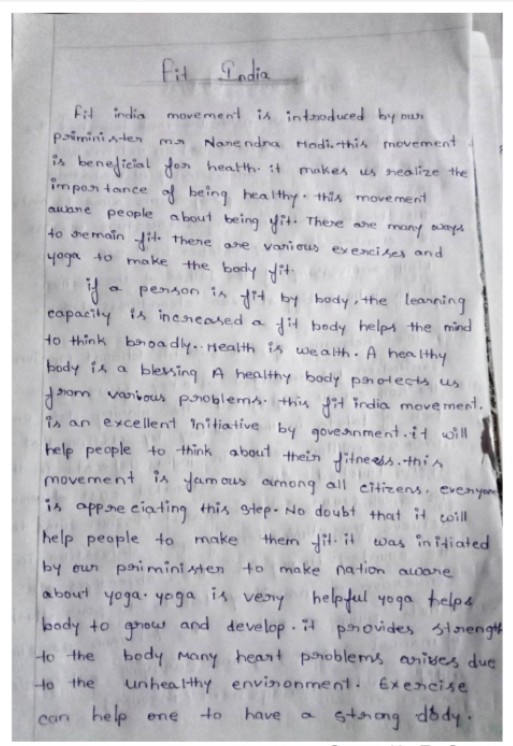 Fit India
Fit india movement is introduced by our
priminister mr Narendra Modi. this movement
is beneficial for health. it makes us realize the
importance of being healthy. this movement
aware people about being fit. There are many ways
to remain fit. There are various exercises and
yoga to make the body fit.
if a person is fit by body, the learning
capacity is increased a fit body helps the mind
to think broadly.. Health is wealth. A healthy
body is a blessing A healthy body protects us
from various problems. this fit india movement.
is an excellent initiative by government. it will
help people to think about their fitness. this
movement is famous among all citizens. everyone
is appreciating this step. No doubt that it will
help people to make them fit. it was initiated
by our priminister to make nation aware
about yoga. yoga is very helpful yoga helps
body to grow and develop. it provides strength
to the body Many heart problems arises due
to the unhealthy environment. Exercise
can help one to have a strong dody.